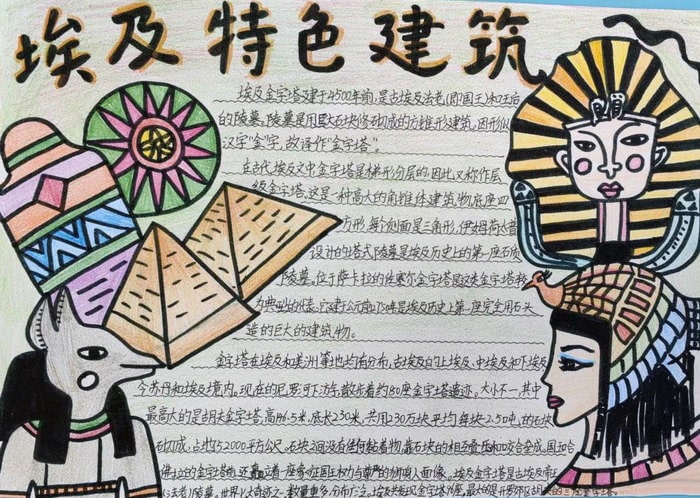 埃及特色建筑
埃及金字塔建于4500年前,是古埃及法老(即国王)和王后
的陵墓。陵墓是用巨大石块修砌成的方锥形建筑,因形似
汉字"金"字,故译作"金字塔"。
在古代埃及文中金字塔是梯形分层的,因此又称作层
级金字塔。这是一种高大的角锥体建筑物,底座四
方形,每个侧面是三角形,伊姆荷
设计的塔式陵墓是埃及历史上的第一座石质
陵墓,位于萨卡拉的佐塞尔金字塔
为典型的代表,它建于公元前 是埃及历史上第一座完全用石头
造的巨大的建筑物。
金字塔在埃及和美洲等地均有分布,古埃及的上埃及、中埃及和下埃及
今苏丹和埃及境内。现在的尼罗河下游,散布着约80座金字塔遗迹。大小不一,其中
最高大的是胡夫金字塔,高146.5米,底长230米,共用230万块平均每块2.5吨的石块
砌成,占地52000平方公尺。石块之间没有任何黏着物,靠石块的相互叠压和咬合垒成。
的金字塔前 一座象征国王权力与尊严的狮身人面像。埃及金字塔是古埃及
陵墓。世界 数量更多,分布广泛。